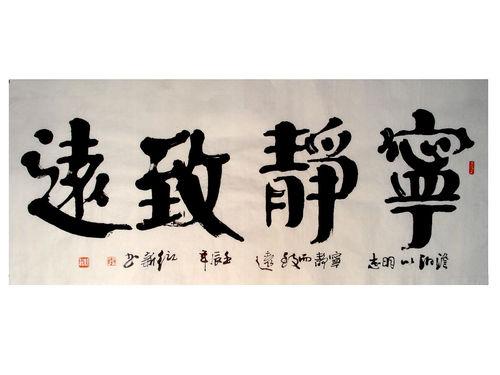 寧靜致遠
澹泊以明志 寧靜而致遠 壬辰年 新书